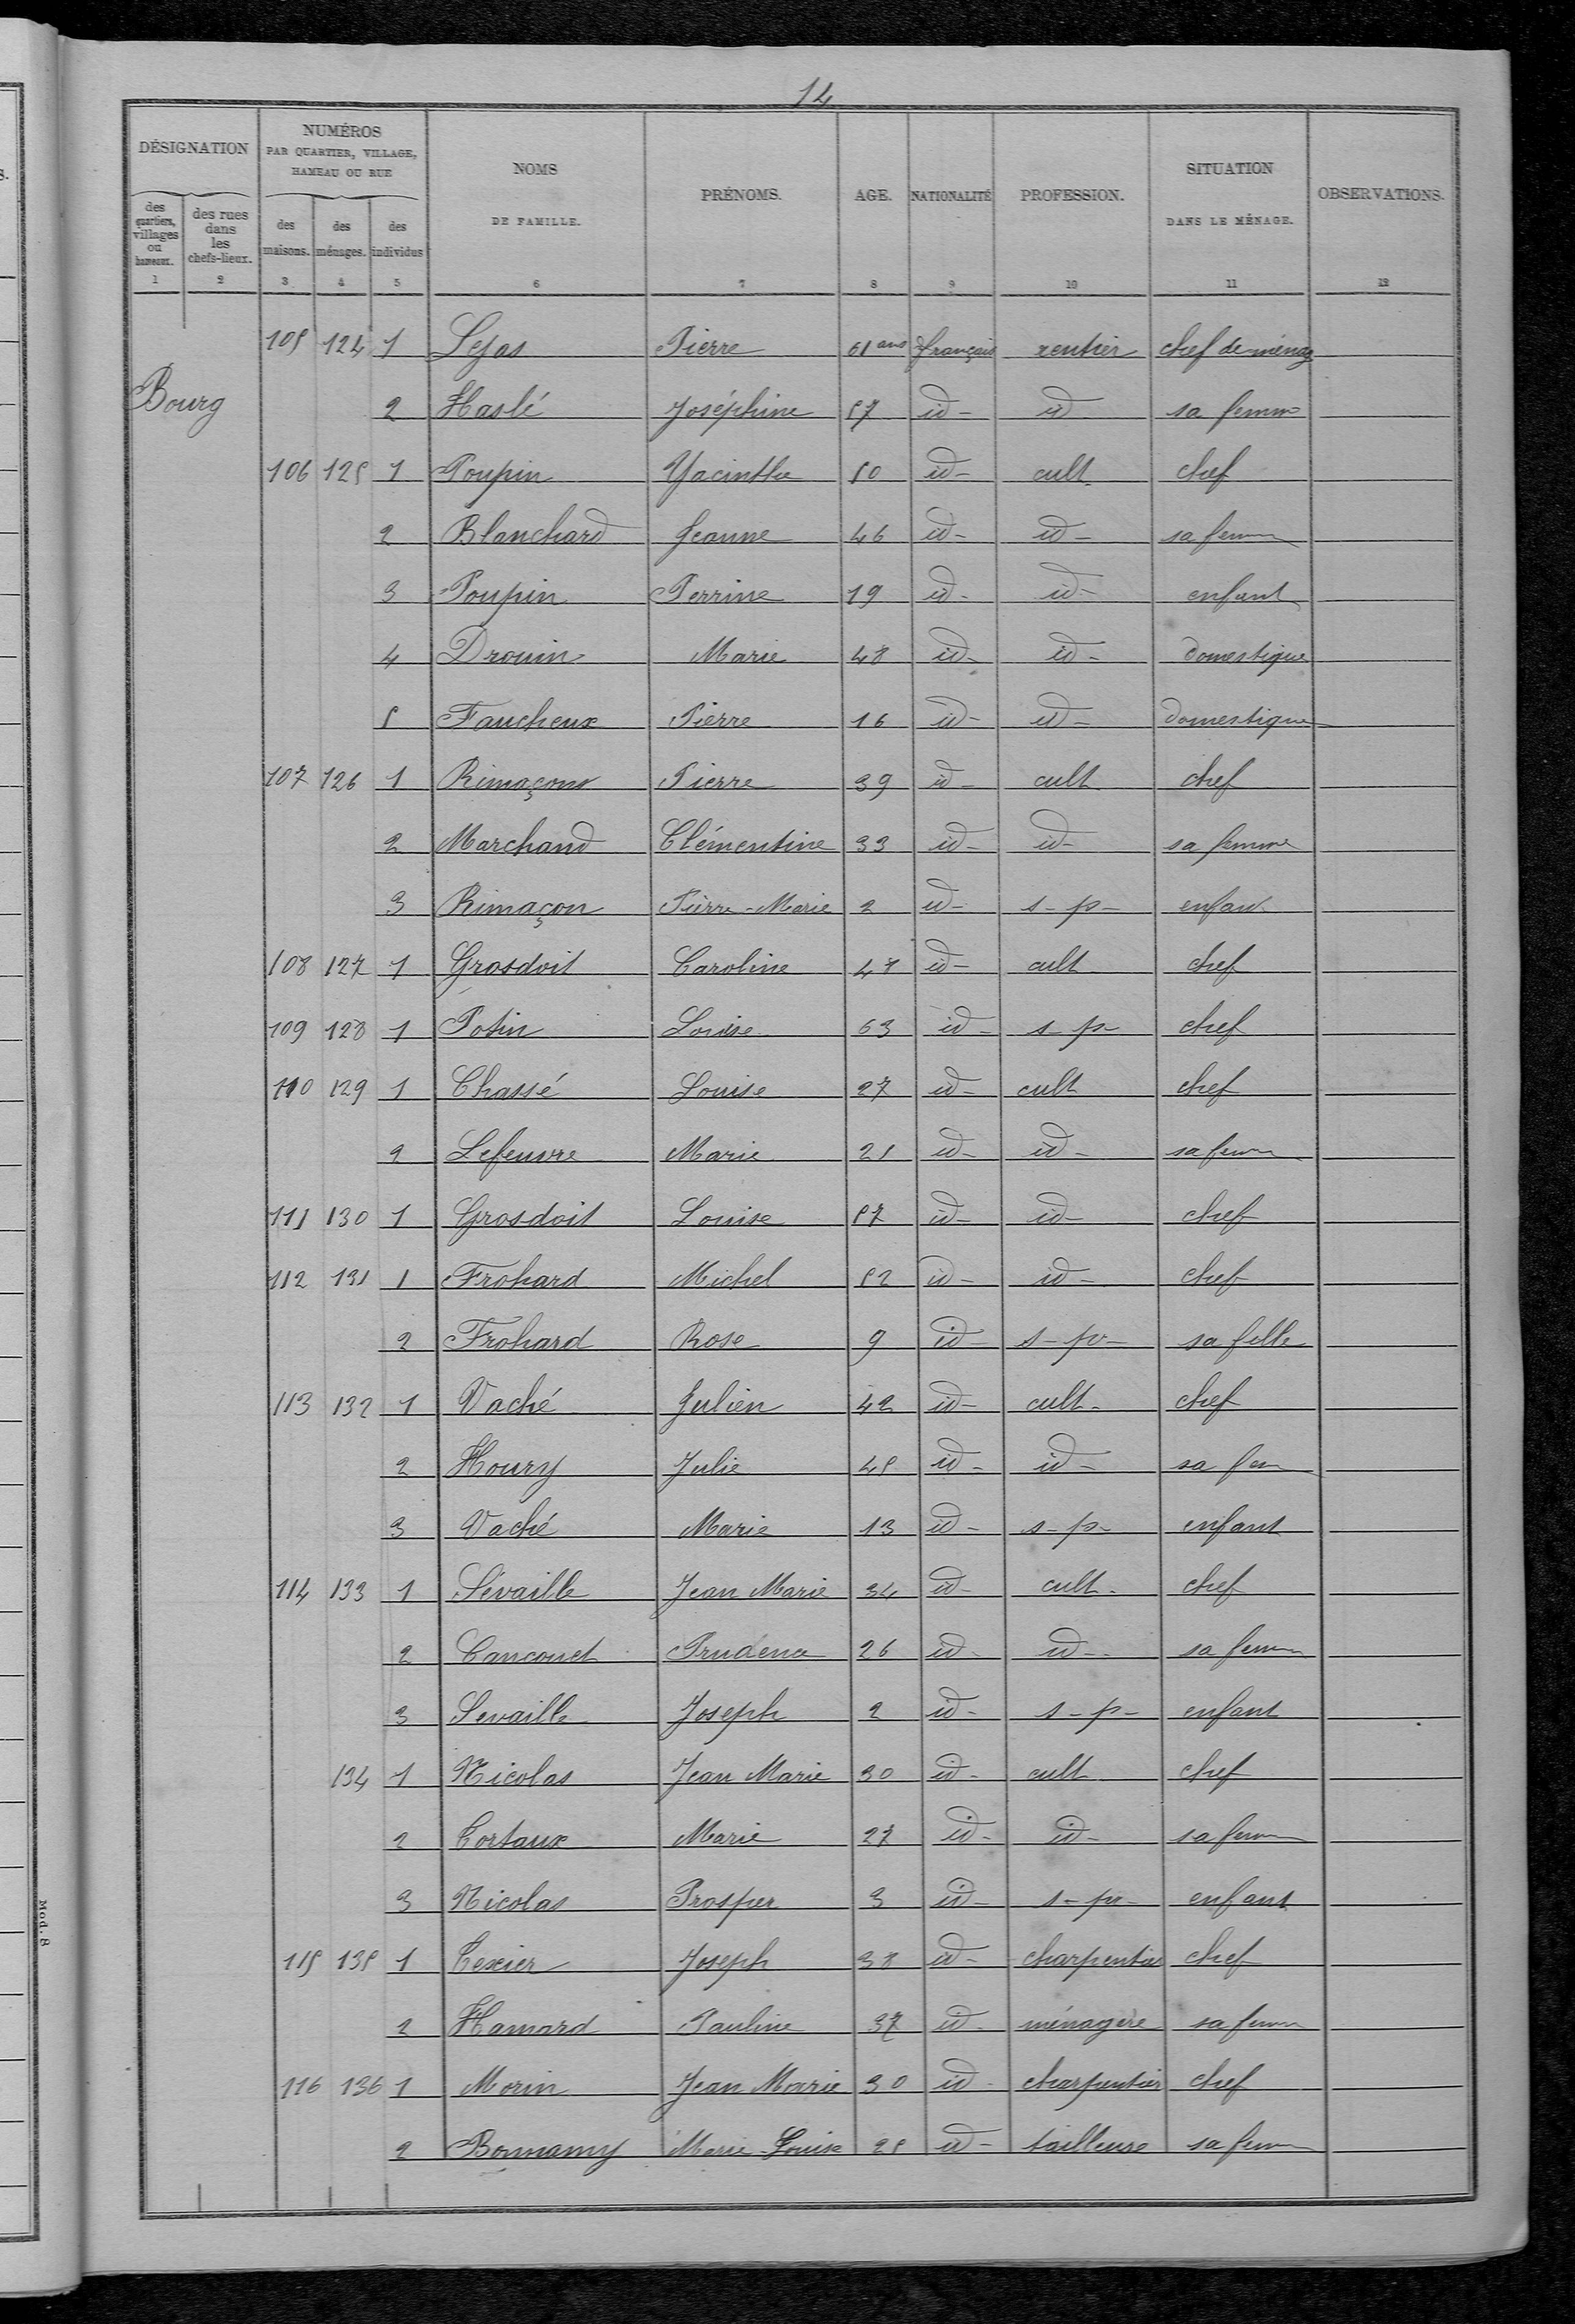 14
DÉSIGNATION
NUMÉROS
PAR QUARTIER, VILLAGE,
HAMEAU OU RUE
NOMS
DE FAMILLE.
PRÉNOMS.
AGE.
NATIONALITÉ
PROFESSION.
SITUATION
DANS LE MÉNAGE.
OBSERVATIONS.
des quartiers, villages ou hameaux.
des rues dans les chefs-lieux.
des maisons.
des ménages.
des individus
1 2 3 4 5 6 7 8 9 10 11 12
105 124 1 Lejas Pierre 61 ans français rentier chef de ménag
Bourg 2 Haslé Joséphine 57 id- id sa femme
106 125 1 Poupin Yacinthe 50 id- cult. chef
2 Blanchard Jeanne 46 id- id- sa femme
3 Poupin Perrine 19 id- id- enfant
4 Drouin Marie 48 id- id- domestique
5 Faucheux Pierre 16 id- id- domestique
107 126 1 Rimaçon Pierre 39 id- cult chef
2 Marchand Clémentine 33 id- id- sa femme
3 Rimaçon Pierre-Marie 2 id- s-p- enfant
108 127 1 Grosdoit Caroline 47 id- cult chef
109 128 1 Potin Louise 63 id- s-p- chef
110 129 1 Chassé Louise 27 id- cult chef
2 Lefeuvre Marie 21 id- id- sa femme
111 130 1 Grosdoit Louise 57 id- id- chef
112 131 1 Frohard Michel 52 id- id- chef
2 Frohard Rose 9 id- s-p- sa fille
113 132 1 Vaché Julien 42 id- cult- chef
2 Houry Julie 45 id- id- sa fem
3 Vaché Marie 13 id- s-p- enfant
114 133 1 Sévaille Jean Marie 34 id- cult- chef
2 Cancouet Prudence 26 id- id- sa femme
3 Sevaille Joseph 2 id- s-p- enfant
134 1 Nicolas Jean Marie 30 id- cult chef
2 Cortaux Marie 27 id- id- sa femme
3 Nicolas Prosper 3 id- s-p- enfant
115 135 1 Texier Joseph 38 id- charpentier chef
2 Hamard Pauline 37 id- ménagère sa femme
116 136 1 Morin Jean Marie 30 id- charpentier chef
2 Bonnamy Marie-Louise 25 id- tailleuse sa femme
Mod. 8